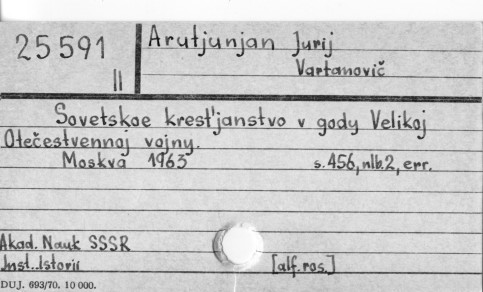 25591 Arutjunjan Jurij
II Vartanovič
Sovetskoe krest'janstvo v gody Velikoj
Otečestvennoj vojny.
Moskva 1963 s. 456, nlb. 2, err.
Akad. Nauk SSSR
Inst. Istorii [alf. ros.]
DUJ. 693/70. 10 000.